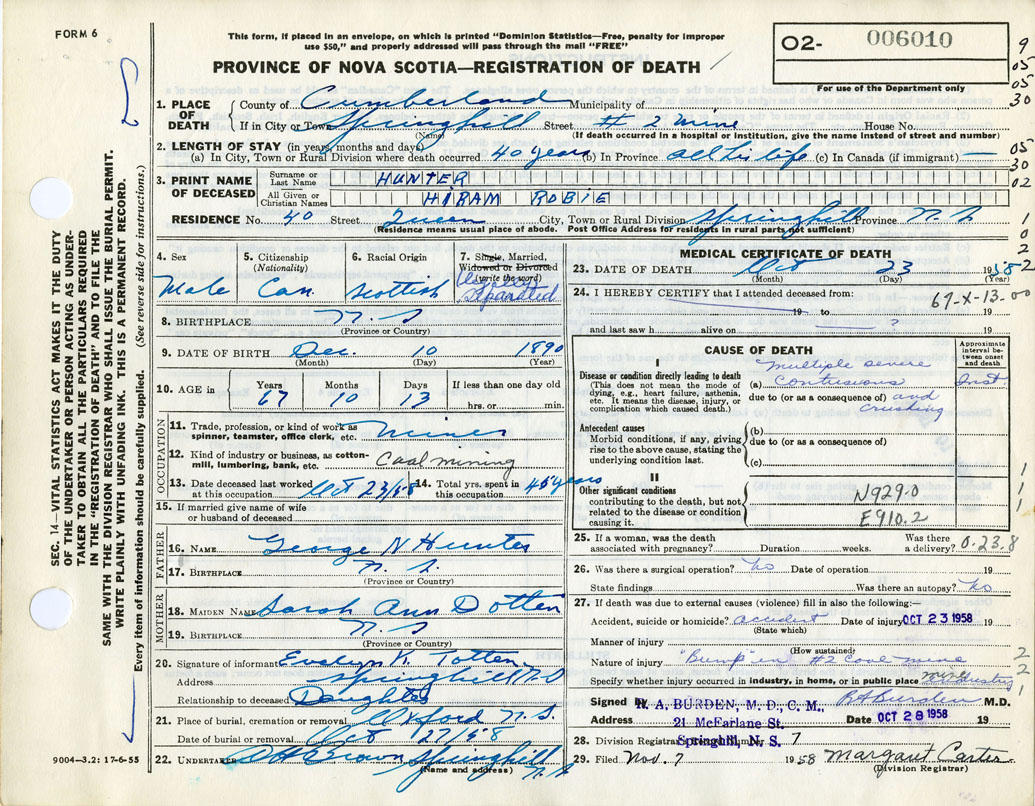 FORM 6
This form, if placed in an envelope, on which is printed "Dominion Statistics—Free, penalty for improper
use $50," and properly addressed will pass through the mail "FREE"
PROVINCE OF NOVA SCOTIA—REGISTRATION OF DEATH
02- 006010
For use of the Department only
9
05
05
30
05
30
02
1
0
2
2
1. PLACE OF DEATH
County of Cumberland Municipality of
If in City or Town Springhill Street # 2 mine House No.
(Name) (If death occurred in a hospital or institution, give the name instead of street and number)
2. LENGTH OF STAY (in years, months and days)
(a) In City, Town or Rural Division where death occurred 40 years (b) In Province all his life (c) In Canada (if immigrant) —
3. PRINT NAME OF DECEASED
Surname or Last Name HUNTER
All Given or Christian Names HIRAM ROBIE
RESIDENCE No. 40 Street Queen City, Town or Rural Division Springhill Province N.S
(Residence means usual place of abode. Post Office Address for residents in rural parts not sufficient)
4. Sex
Male
5. Citizenship
(Nationality)
Can.
6. Racial Origin
Scottish
7. Single, Married,
Widowed or Divorced
(write the word)
Separated
8. BIRTHPLACE N.S
(Province or Country)
9. DATE OF BIRTH Dec. 10 1890
(Month) (Day) (Year)
10. AGE in
Years Months Days If less than one day old
67 10 13 hrs. or min.
OCCUPATION
11. Trade, profession, or kind of work as
spinner, teamster, office clerk, etc. Miner
12. Kind of industry or business, as cotton-
mill, lumbering, bank, etc. Coal mining
13. Date deceased last worked
at this occupation Oct 23/58
14. Total yrs. spent in
this occupation 45 years
15. If married give name of wife
or husband of deceased
FATHER
16. NAME George N Hunter
17. BIRTHPLACE N.S.
(Province or Country)
MOTHER
18. MAIDEN NAME Sarah Ann Dotten
19. BIRTHPLACE N.S
(Province or Country)
20. Signature of informant Evelyn K. Totten
Address Springhill N.S
Relationship to deceased Daughter
21. Place of burial, cremation or removal Oxford N.S.
Date of burial or removal Oct 27/58
22. UNDERTAKER Brown Springhill
N.S
(Name and address)
MEDICAL CERTIFICATE OF DEATH
23. DATE OF DEATH Oct 23 1958
(Month) (Day) (Year)
24. I HEREBY CERTIFY that I attended deceased from:
67-X-13.00
19 to 19
and last saw h alive on ? 19
CAUSE OF DEATH
Approximate
interval be-
tween onset
and death
I
Disease or condition directly leading to death
(This does not mean the mode of
dying, e.g., heart failure, asthenia,
etc. It means the disease, injury, or
complication which caused death.)
(a) Multiple severe
contusions Inst.
due to (or as a consequence of) and
crushing
Antecedent causes
Morbid conditions, if any, giving
rise to the above cause, stating the
underlying condition last.
(b)
due to (or as a consequence of)
(c)
II
Other significant conditions
contributing to the death, but not
related to the disease or condition
causing it.
N929.0
E910.2
1
1
1
25. If a woman, was the death
associated with pregnancy? Duration weeks.
Was there
a delivery? 0.23.8
26. Was there a surgical operation? No Date of operation 19
State findings Was there an autopsy? No
27. If death was due to external causes (violence) fill in also the following:—
Accident, suicide or homicide? accident Date of injury OCT 23 1958 19
(State which)
Manner of injury
(How sustained)
Nature of injury "Bump" in #2 coal mine
Specify whether injury occurred in industry, in home, or in public place
2
2
1
Signed H. A. BURDEN, M. D., C. M., M.D.
Address 21 McFarlane St.
Springhill, N. S.
Date OCT 28 1958 19
28. Division Registrar 7
29. Filed Nov. 7 1958 Margaret Carter
(Division Registrar)
SEC. 14—VITAL STATISTICS ACT MAKES IT THE DUTY
OF THE UNDERTAKER OR PERSON ACTING AS UNDER-
TAKER TO OBTAIN ALL THE PARTICULARS REQUIRED
IN THE "REGISTRATION OF DEATH" AND TO FILE THE
SAME WITH THE DIVISION REGISTRAR WHO SHALL ISSUE THE BURIAL PERMIT.
WRITE PLAINLY WITH UNFADING INK. THIS IS A PERMANENT RECORD.
Every item of information should be carefully supplied. (See reverse side for instructions.)
9004—3.2: 17-6-55